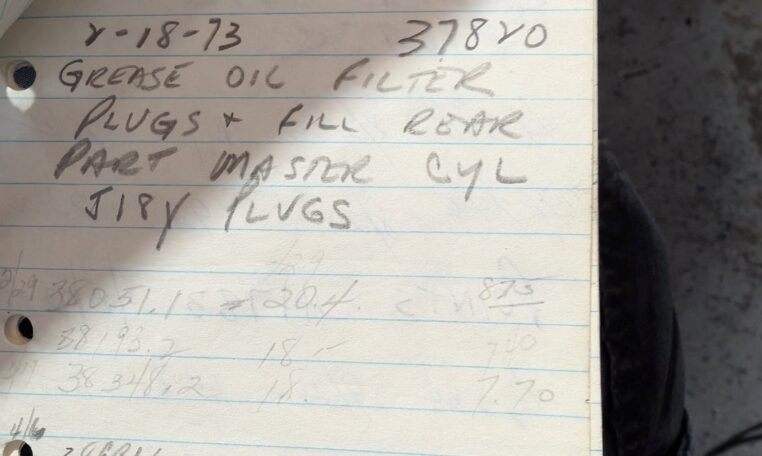 2-18-73 37820
GREASE OIL FILTER
PLUGS + FILL REAR
PART MASTER CYL
J18Y PLUGS
38051.1 - 20.4. 835
38193.2 18.-
38348.2 18. 7.70
4/6